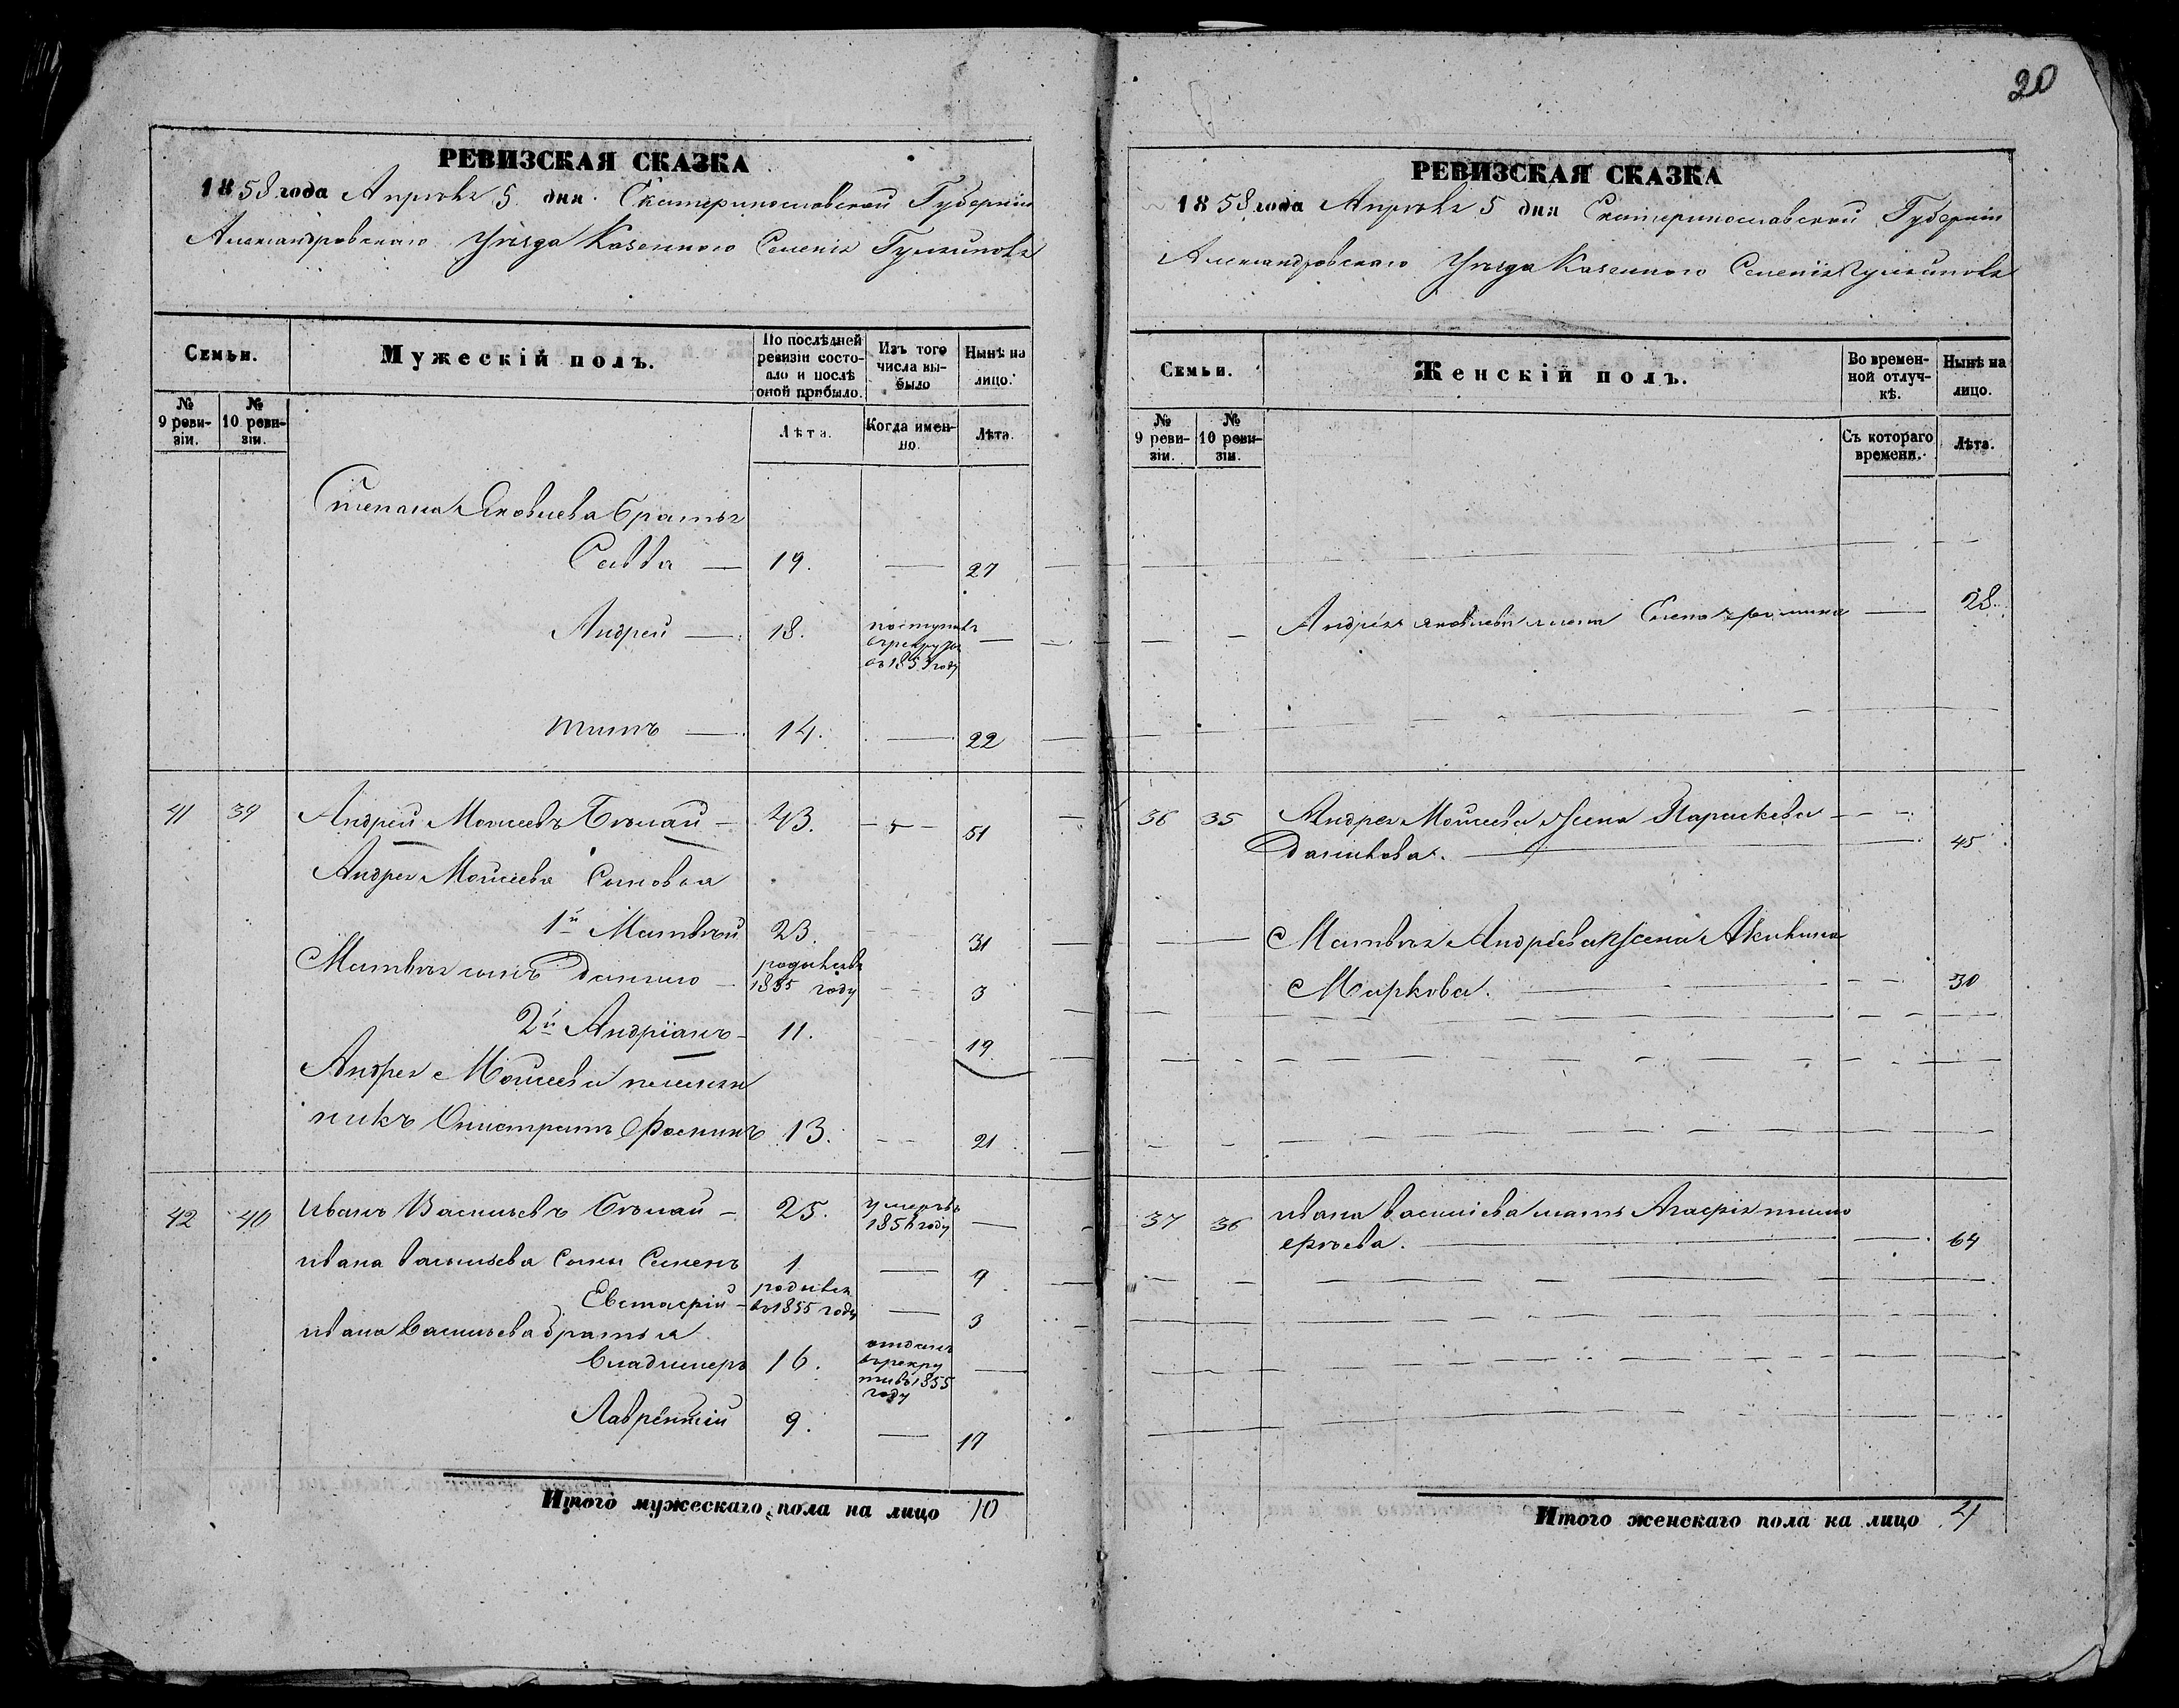 20
РЕВИЗСКАЯ СКАЗКА
1858 года Апреля 5 дня. Екатеринославской Губернии
Александровскаго Уезда Казенного Селения Гуляиполя
Семьи.
Мужескій полъ.
По послѣдней ревизіи состояло и послѣ оной прибыло.
Изъ того числа выбыло
Нынѣ на лицо.
№ 9 ревизіи.
№ 10 ревизіи.
Лѣта.
Когда именно.
Лѣта.
Степана Яковлева братья
Савва — 19. — 27
Андрей — 18. поступилъ
в рекруты
въ 1853 году —
14. — 22
41 39 Андрей Моисеевъ Белай — 43. — 51
Андрея Моисеева Сыновья
1й Матвей 23. 31
Матвея сынъ Данило — родился
1855 году 3
2й Андріянъ — 11. 19
Андрея Моисеева племян
никъ Фоминъ 13. 21
42 40 Иванъ Васильевъ Белай — 25. умеръ въ
1856 году —
Ивана Васильева Сынъ Семенъ 1 — 9
Евстафій — родился
въ 1855 году — 3
Ивана Васильева братья
Владимеръ 16. отданъ
в рекру
ты въ 1855
году —
Лаврентій 9. — 17
Итого мужескаго пола на лицо 10
РЕВИЗСКАЯ СКАЗКА
1858 года Апреля 5 дня Екатеринославской Губернии
Александровскаго Уезда Казенного Селения Гуляиполя
Семьи.
Женскій полъ.
Во временной отлучкѣ.
Нынѣ на лицо.
№ 9 ревизіи.
№ 10 ревизіи.
Съ котораго времени.
Лѣта.
Андрея Яковлева жена Елена — 28.
36 35 Андрея Моисеева Жена Параскева
Данилова. — 45
Матвея Андреева Жена Акилина
Маркова. — 30
37 36 Ивана Васильева мать Агафія Тимо
феева. — 64
Итого женскаго пола на лицо 4